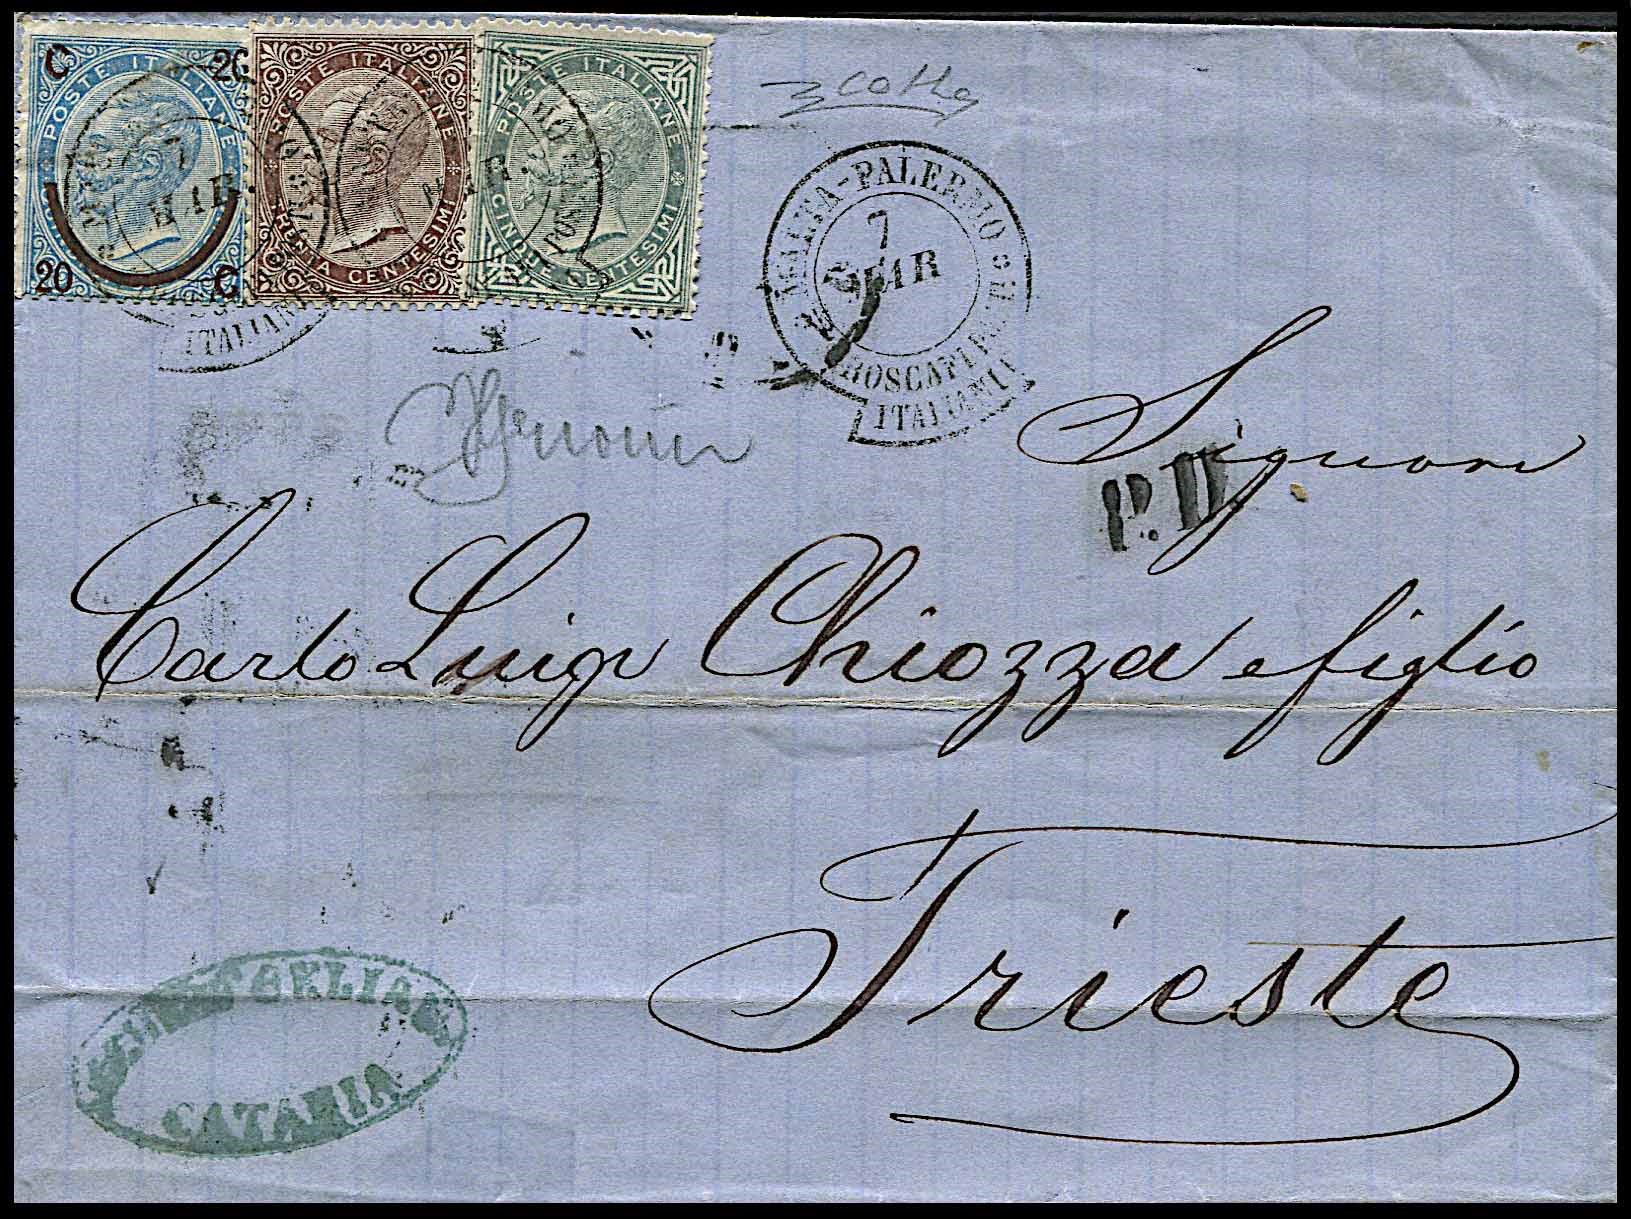 C 20
POSTE ITALIANE
20 C
POSTE ITALIANE
TRENTA CENTESIMI
POSTE ITALIANE
CINQUE CENTESIMI
7
MAR.
ITALIANI
MALTA-PALERMO
7
MAR
PIROSCAFI POSTALI
ITALIANI
P.D.
Signori
Carlo Luigi Chiozza e figlio
Trieste
CATANIA